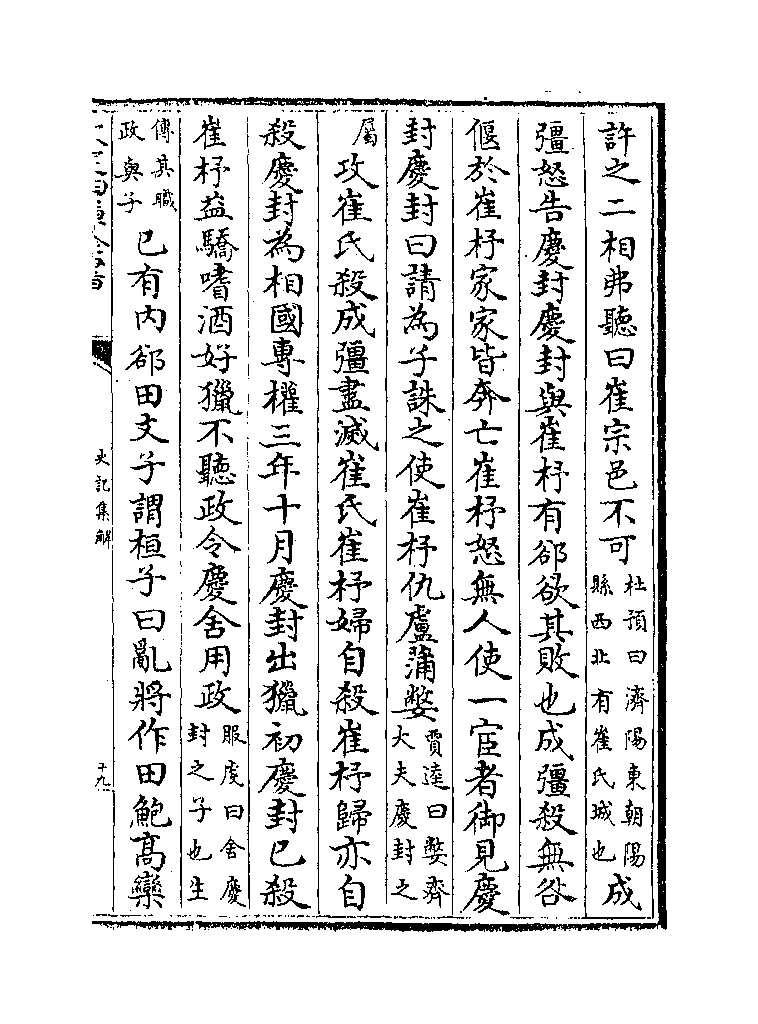 許之二相弗聽曰崔宗邑不可杜預曰濟陽東朝陽縣西北有崔氏城也成
彊怒告慶封慶封與崔杼有郤欲其敗也成彊殺無咎
偃於崔杼家家皆奔亡崔杼怒無人使一宦者御見慶
封慶封曰請為子誅之使崔杼仇盧蒲嫳賈逵曰嫳齊大夫慶封之
屬攻崔氏殺成彊盡滅崔氏崔杼婦自殺崔杼歸亦自
殺慶封為相國專權三年十月慶封出獵初慶封已殺
崔杼益驕嗜酒好獵不聽政令慶舍用政服虔曰舍慶封之子也生
傳其職政與子已有内郤田文子謂桓子曰亂將作田鮑髙欒
史記集解
十九